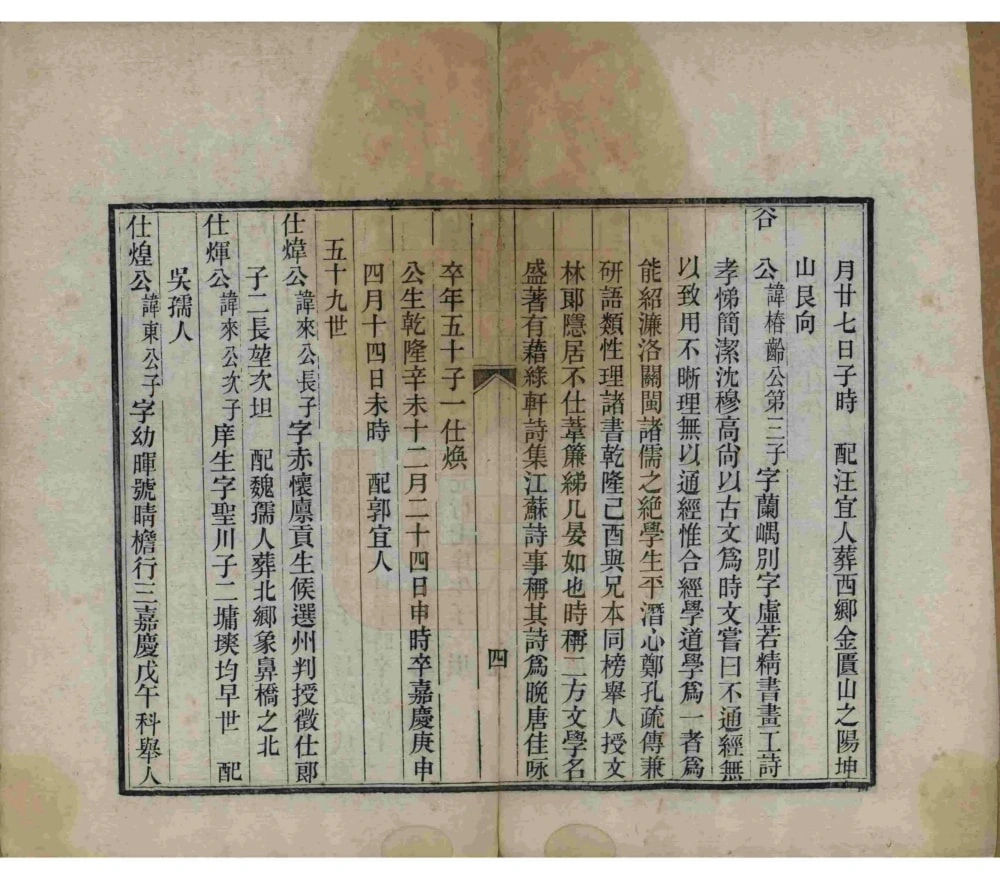 月廿七日子時　配汪宜人葬西鄉金匱山之陽坤
山艮向
谷　公諱椿齡公第三子字蘭嵎別字虛若精書畫工詩
孝悌簡潔沈穆高尙以古文爲時文嘗曰不通經無
以致用不晰理無以通經惟合經學道學爲一者爲
能紹濂洛關閩諸儒之絶學生平潛心鄭孔疏傳兼
研語類性理諸書乾隆己酉與兄本同榜舉人授文
林郎隱居不仕葦簾綈几晏如也時稱二方文學名
盛著有藉綠軒詩集江蘇詩事稱其詩爲晚唐佳咏
四
卒年五十子一仕煥
公生乾隆辛未十二月二十四日申時卒嘉慶庚申
四月十四日未時　配郭宜人
五十九世
仕煒公諱來公長子字赤懷廩貢生候選州判授徵仕郎
子二長堃次坦　配魏孺人葬北鄉象鼻橋之北
仕煇公諱來公次子庠生字聖川子二墉堧均早世　配
吳孺人
仕煌公諱東公子字幼暉號晴檐行三嘉慶戊午科舉人